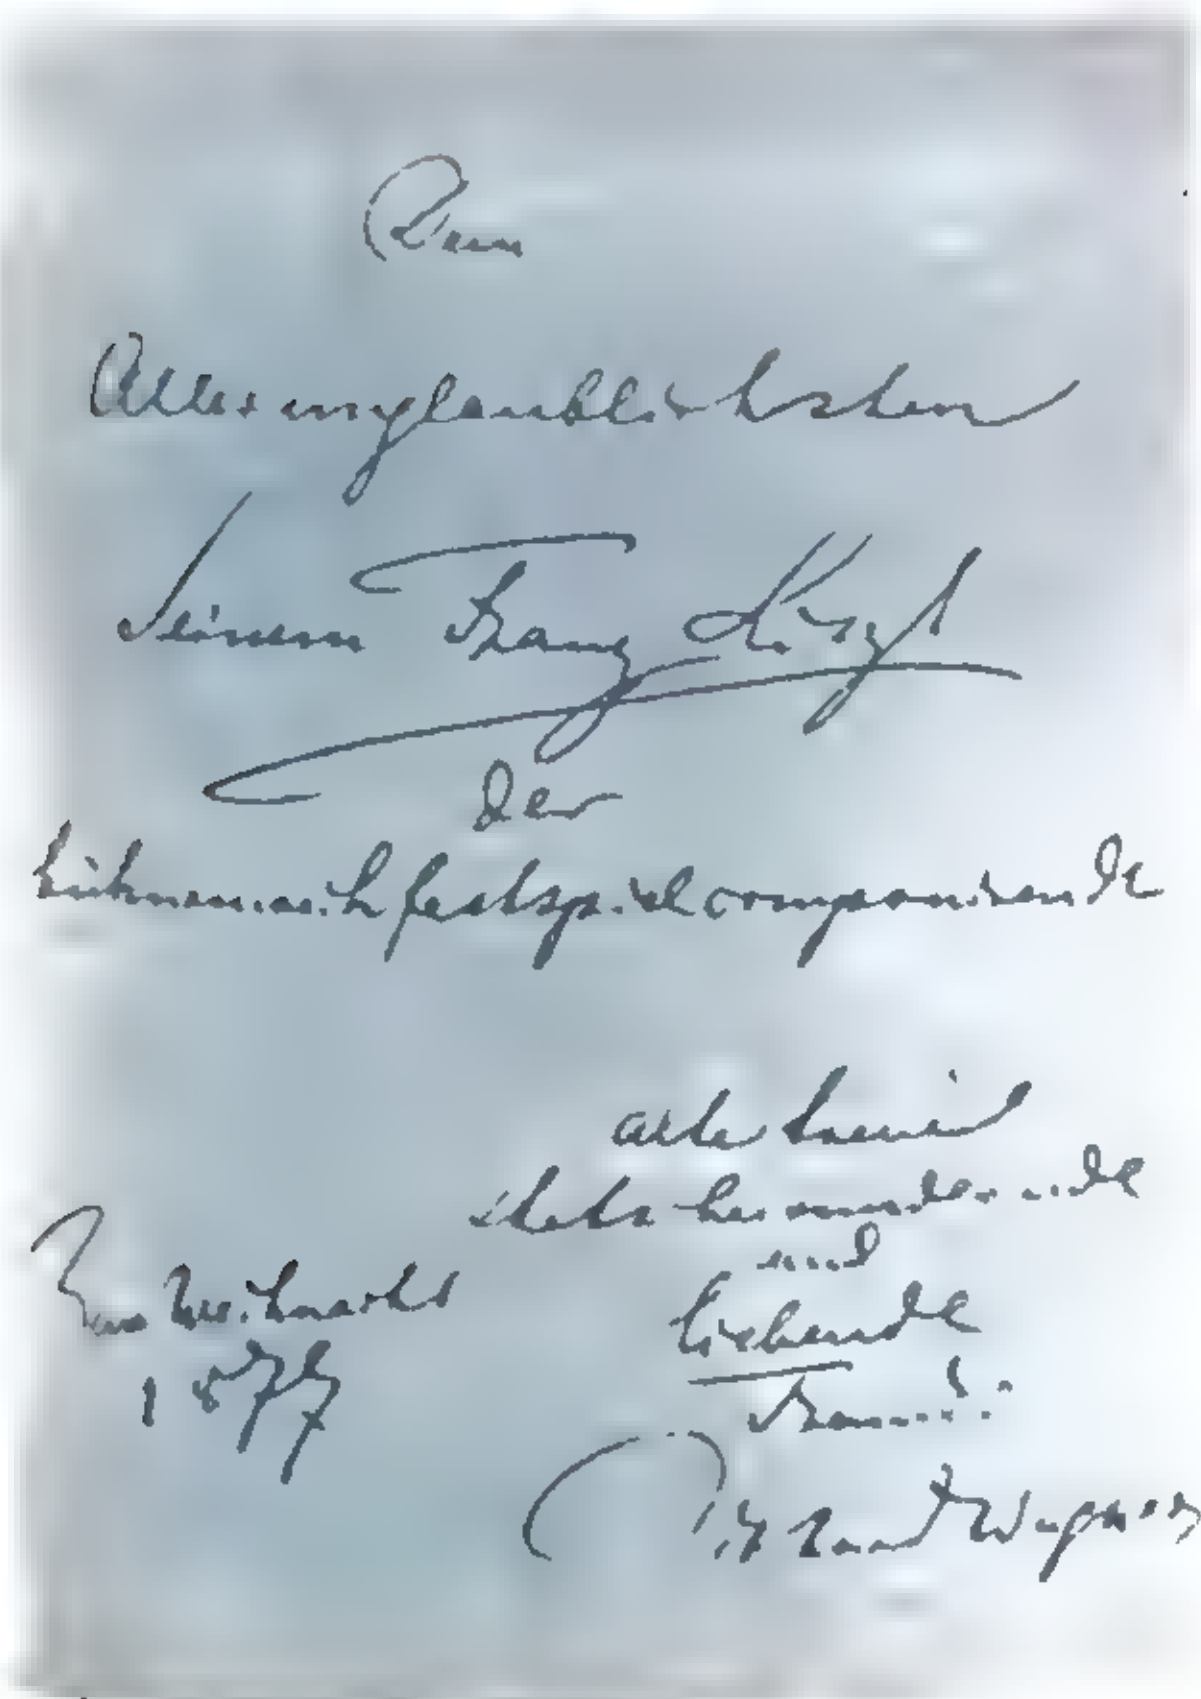 Dem
Allerunglaublichsten
Seinem Franz Liszt
der
bühnenweihfestspielcomponirende
alleweil
stets bewundernde
und
liebende
Freund:
Richard Wagner
Zur Weihnacht
1877